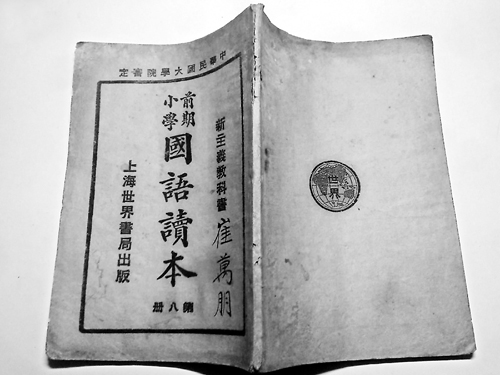 中華民國大學院審定
新主義教科書
前期小學
國語讀本
第八册
上海世界書局出版
崔萬朋
世界